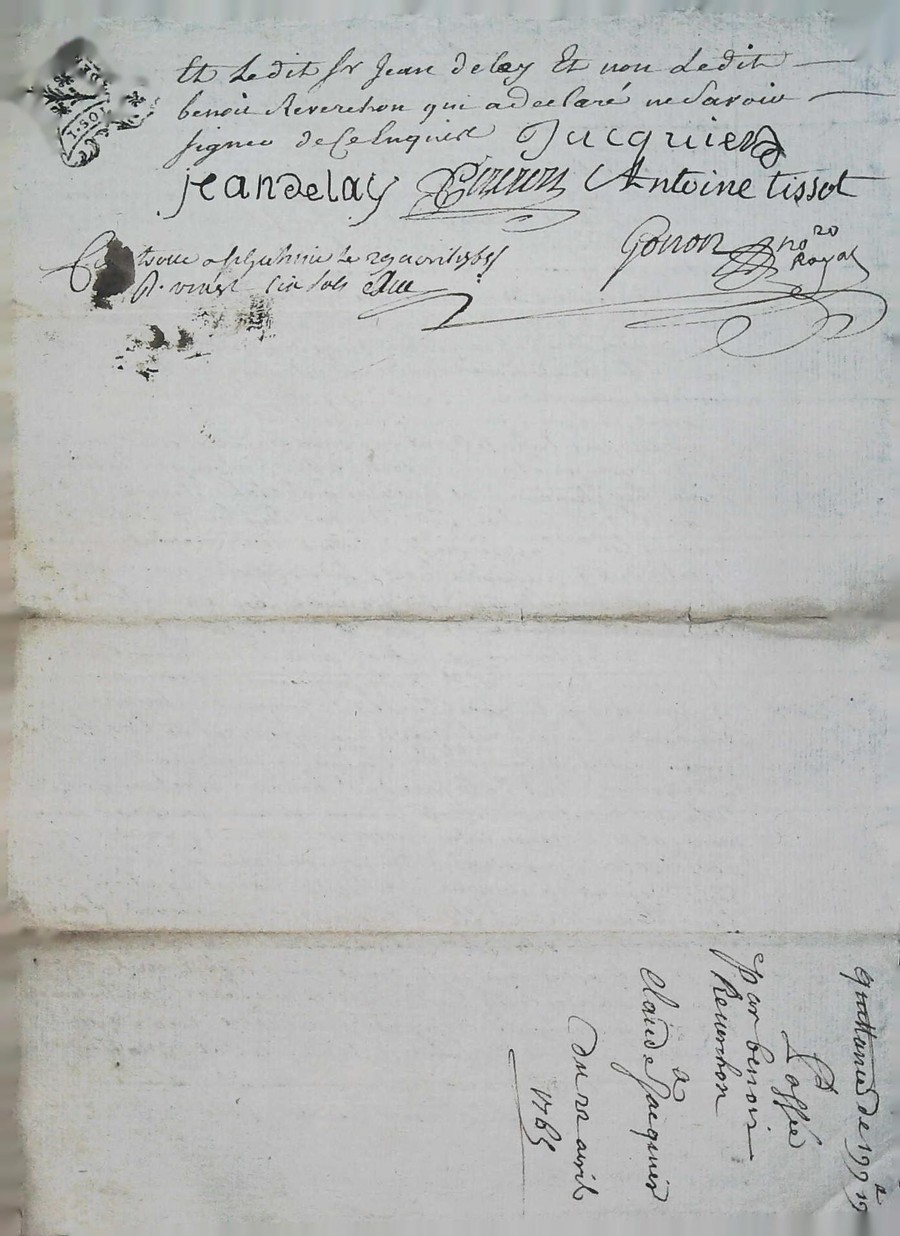 1.SOL
Et Ledit Sr Jean delay Et non Ledit
benoit Reverchon qui adeclaré ne Savoir
signer de Ce Enquis Jacquier
jean delay Antoine tissot
le 29 avril 1765 Gonon no re Royal
R. vingt six sols
quittance de
Passée
par benoit
Reverchon
a
claude Jacquier
Du 22 avril
1765